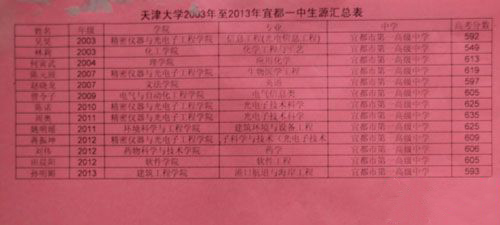 天津大学2003年至2013年宜都一中生源汇总表
姓名 年级 学院 专业 中学 高考分数
吴昊 2003 精密仪器与光电子工程学院 信息工程(光电信息工程) 宜都市第一高级中学 592
林莉 2003 化工学院 化学工程与工艺 宜都市第一高级中学 549
2004 理学院 应用化学 宜都市第一高级中学 613
2007 精密仪器与光电子工程学院 生物医学工程 宜都市第一高级中学 619
赵晓龙 2007 文法学院 宜都市第一高级中学 597
2009 电气与自动化工程学院 电气信息类 宜都市第一高级中学 605
陈诺 2010 精密仪器与光电子工程学院 光电子技术科学 宜都市第一高级中学 625
周奥 2011 精密仪器与光电子工程学院 光电子技术科学 宜都市第一高级中学 635
姚明媚 2011 环境科学与工程学院 建筑环境与设备工程 宜都市第一高级中学 625
蒋振坤 2012 精密仪器与光电子工程学院 子科学与技术(光电子技术 宜都市第一高级中学 609
刘伟 2012 药物科学与技术学院 药学 宜都市第一高级中学 606
田晨阳 2012 软件学院 软件工程 宜都市第一高级中学 605
孙明 2013 建筑工程学院 港口航道与海岸工程 宜都市第一高级中学 593